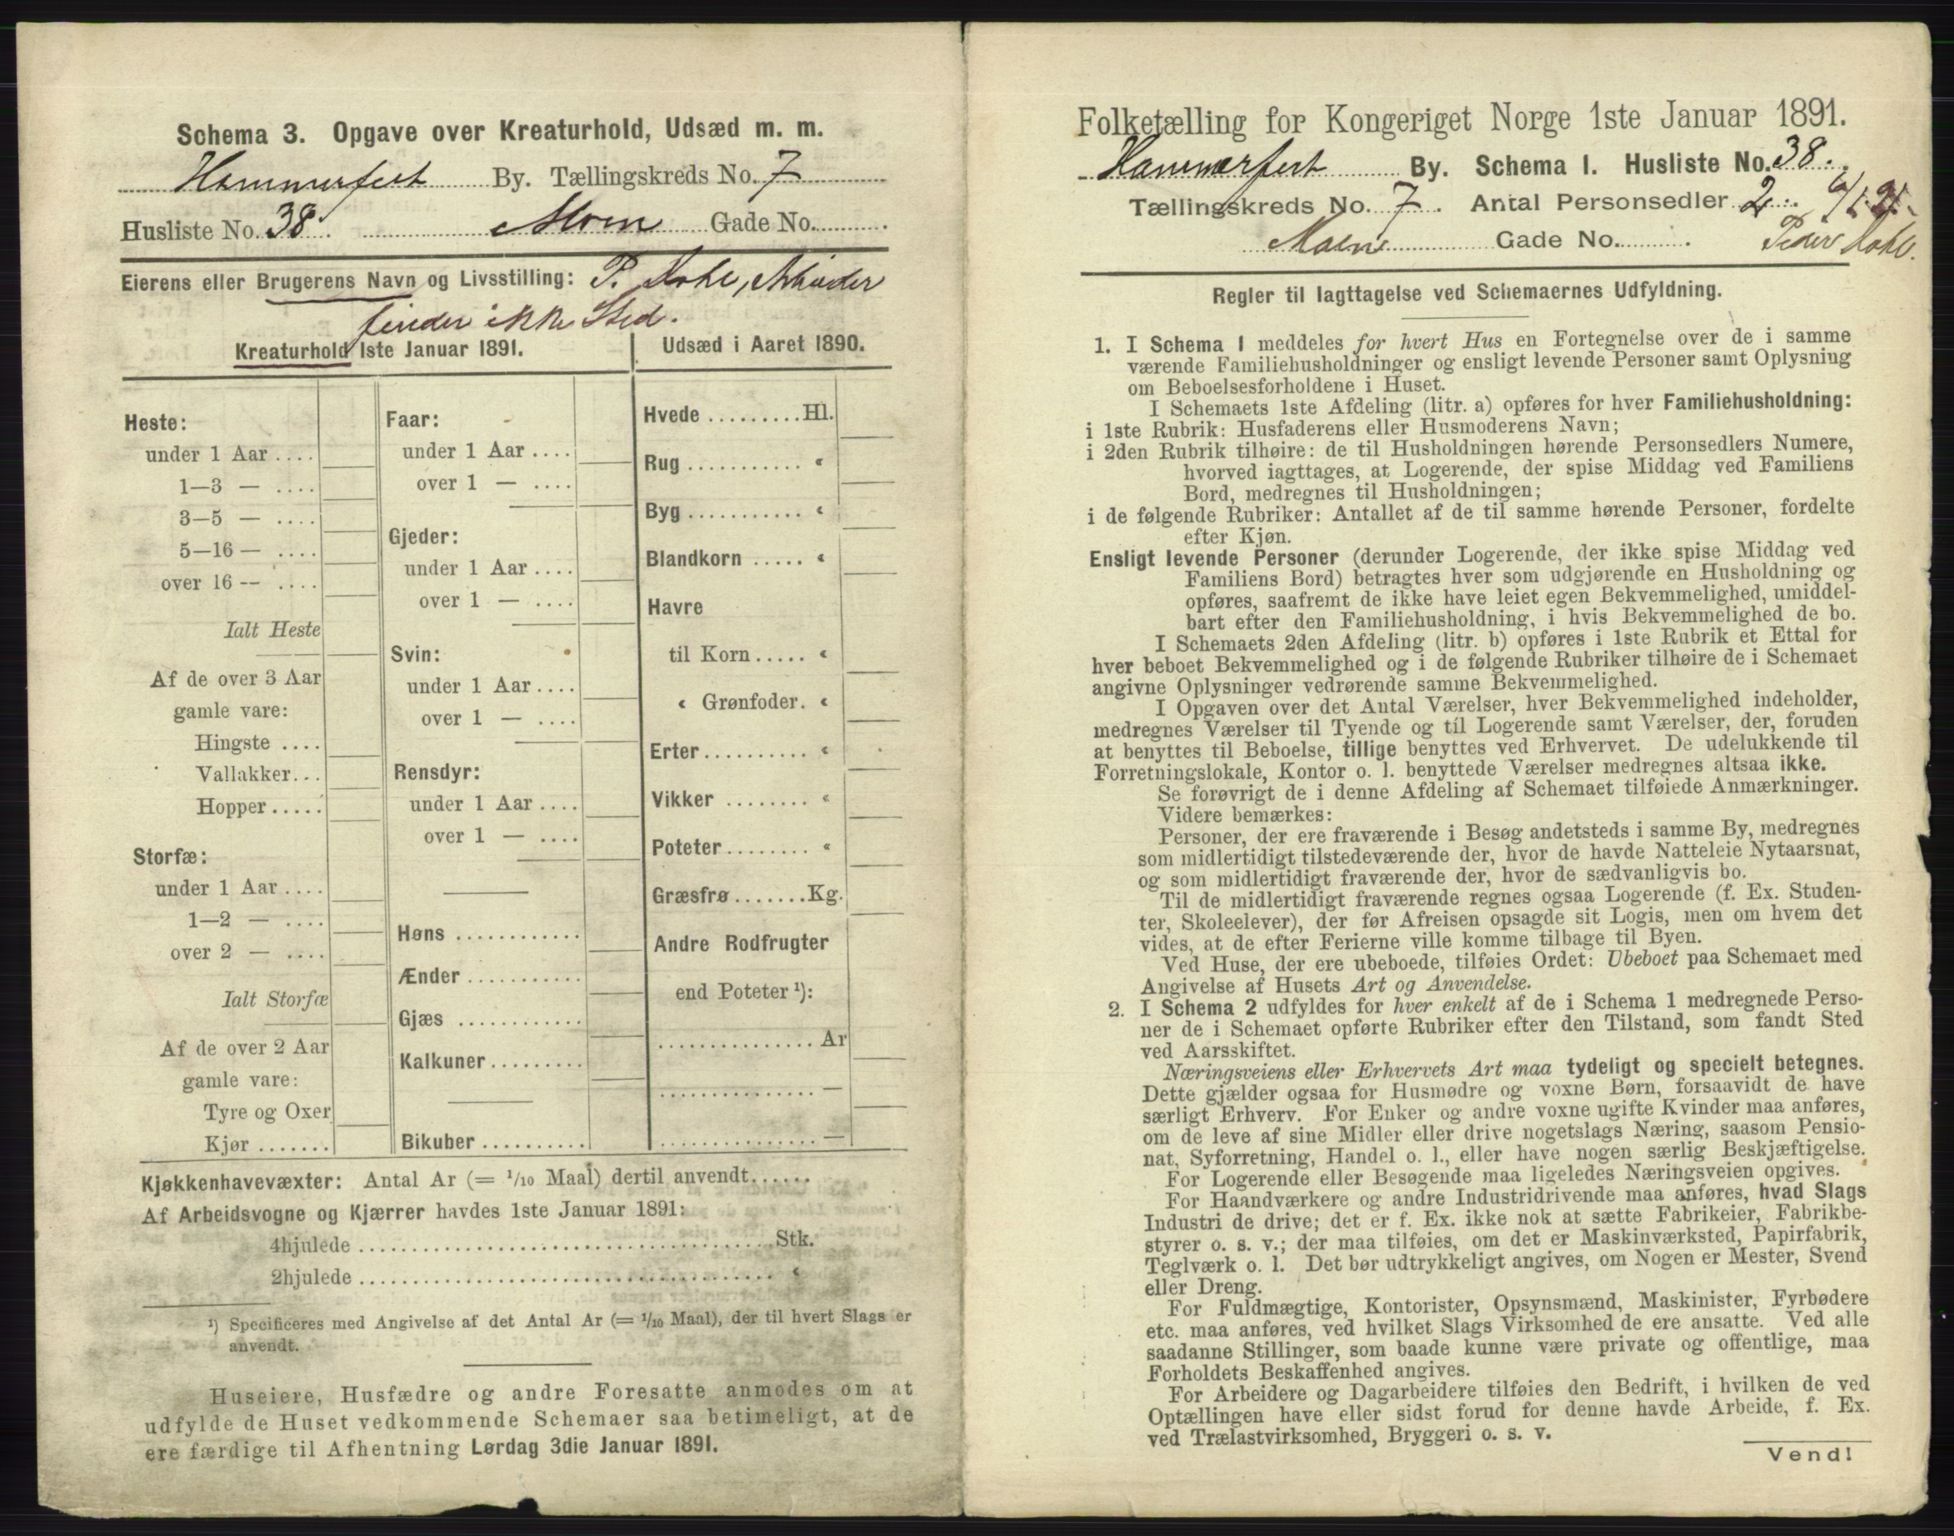 Schema 3. Opgave over Kreaturhold, Udsæd m. m.
Hammerfest By. Tællingskreds No. 7
Husliste No. 38. Moen Gade No.
Eierens eller Brugerens Navn og Livsstilling: P. Arbeider
finder ikke Sted.
Kreaturhold 1ste Januar 1891.
Heste:
under 1 Aar ....
1—3 — ....
3—5 — ....
5—16 — ....
over 16 — ....
Ialt Heste
Af de over 3 Aar
gamle vare:
Hingste ....
Vallakker...
Hopper .....
Storfæ:
under 1 Aar ....
1—2 — ....
over 2 — ....
Ialt Storfæ
Af de over 2 Aar
gamle vare:
Tyre og Oxer
Kjør .......
Faar:
under 1 Aar ....
over 1 — ....
Gjeder:
under 1 Aar ....
over 1 — ....
Svin:
under 1 Aar ....
over 1 — ....
Rensdyr:
under 1 Aar ....
over 1 — ....
Høns ............
Ænder ...........
Gjæs ............
Kalkuner.........
Bikuber ..........
Udsæd i Aaret 1890.
Hvede .........Hl.
Rug ........... «
Byg ........... «
Blandkorn ..... «
Havre
til Korn ..... «
« Grønfoder. «
Erter.......... «
Vikker ........ «
Poteter........ «
Græsfrø .......Kg.
Andre Rodfrugter
end Poteter ¹):
............... Ar
............... —
............... —
Kjøkkenhavevæxter: Antal Ar (= 1/10 Maal) dertil anvendt......
Af Arbeidsvogne og Kjærrer havdes 1ste Januar 1891:
4hjulede ........................................ Stk.
2hjulede ........................................ «
¹) Specificeres med Angivelse af det Antal Ar (= 1/10 Maal), der til hvert Slags er
anvendt.
Huseiere, Husfædre og andre Foresatte anmodes om at
udfylde de Huset vedkommende Schemaer saa betimeligt, at de
ere færdige til Afhentning Lørdag 3die Januar 1891.
Folketælling for Kongeriget Norge 1ste Januar 1891.
Hammerfest By. Schema I. Husliste No. 38.
Tællingskreds No. 7. Antal Personsedler 2.
Moen Gade No. . Peder
Regler til Iagttagelse ved Schemaernes Udfyldning.
1. I Schema I meddeles for hvert Hus en Fortegnelse over de i samme
værende Familiehusholdninger og ensligt levende Personer samt Oplysning
om Beboelsesforholdene i Huset.
I Schemaets 1ste Afdeling (litr. a) opføres for hver Familiehusholdning:
i 1ste Rubrik: Husfaderens eller Husmoderens Navn;
i 2den Rubrik tilhøire: de til Husholdningen hørende Personsedlers Numere,
hvorved iagttages, at Logerende, der spise Middag ved Familiens
Bord, medregnes til Husholdningen;
i de følgende Rubriker: Antallet af de til samme hørende Personer, fordelte
efter Kjøn.
Ensligt levende Personer (derunder Logerende, der ikke spise Middag ved
Familiens Bord) betragtes hver som udgjørende en Husholdning og
opføres, saafremt de ikke have leiet egen Bekvemmelighed, umiddel-
bart efter den Familiehusholdning, i hvis Bekvemmelighed de bo.
I Schemaets 2den Afdeling (litr. b) opføres i 1ste Rubrik et Ettal for
hver beboet Bekvemmelighed og i de følgende Rubriker tilhøire de i Schemaet
angivne Oplysninger vedrørende samme Bekvemmelighed.
I Opgaven over det Antal Værelser, hver Bekvemmelighed indeholder,
medregnes Værelser til Tyende og til Logerende samt Værelser, der, foruden
at benyttes til Beboelse, tillige benyttes ved Erhvervet. De udelukkende til
Forretningslokale, Kontor o. l. benyttede Værelser medregnes altsaa ikke.
Se forøvrigt de i denne Afdeling af Schemaet tilføiede Anmærkninger.
Videre bemærkes:
Personer, der ere fraværende i Besøg andetsteds i samme By, medregnes
som midlertidigt tilstedeværende der, hvor de havde Natteleie Nytaarsnat,
og som midlertidigt fraværende der, hvor de sædvanligvis bo.
Til de midlertidigt fraværende regnes ogsaa Logerende (f. Ex. Studen-
ter, Skoleelever), der før Afreisen opsagde sit Logis, men om hvem det
vides, at de efter Ferierne ville komme tilbage til Byen.
Ved Huse, der ere ubeboede, tilføies Ordet: Ubeboet paa Schemaet med
Angivelse af Husets Art og Anvendelse.
2. I Schema 2 udfyldes for hver enkelt af de i Schema 1 medregnede Perso-
ner de i Schemaet opførte Rubriker efter den Tilstand, som fandt Sted
ved Aarsskiftet.
Næringsveiens eller Erhvervets Art maa tydeligt og specielt betegnes.
Dette gjælder ogsaa for Husmødre og voxne Børn, forsaavidt de have
særligt Erhverv. For Enker og andre voxne ugifte Kvinder maa anføres,
om de leve af sine Midler eller drive nogetslags Næring, saasom Pensio-
nat, Syforretning, Handel o. l., eller have nogen særlig Beskjæftigelse.
For Logerende eller Besøgende maa ligeledes Næringsveien opgives.
For Haandværkere og andre Industridrivende maa anføres, hvad Slags
Industri de drive; det er f. Ex. ikke nok at sætte Fabrikeier, Fabrikbe-
styrer o. s. v.; der maa tilføies, om det er Maskinværksted, Papirfabrik,
Teglværk o. l. Det bør udtrykkeligt angives, om Nogen er Mester, Svend
eller Dreng.
For Fuldmægtige, Kontorister, Opsynsmænd, Maskinister, Fyrbødere
etc. maa anføres, ved hvilket Slags Virksomhed de ere ansatte. Ved alle
saadanne Stillinger, som baade kunne være private og offentlige, maa
Forholdets Beskaffenhed angives.
For Arbeidere og Dagarbeidere tilføies den Bedrift, i hvilken de ved
Optællingen have eller sidst forud for denne havde Arbeide, f. Ex.
ved Trælastvirksomhed, Bryggeri o. s. v.
Vend!